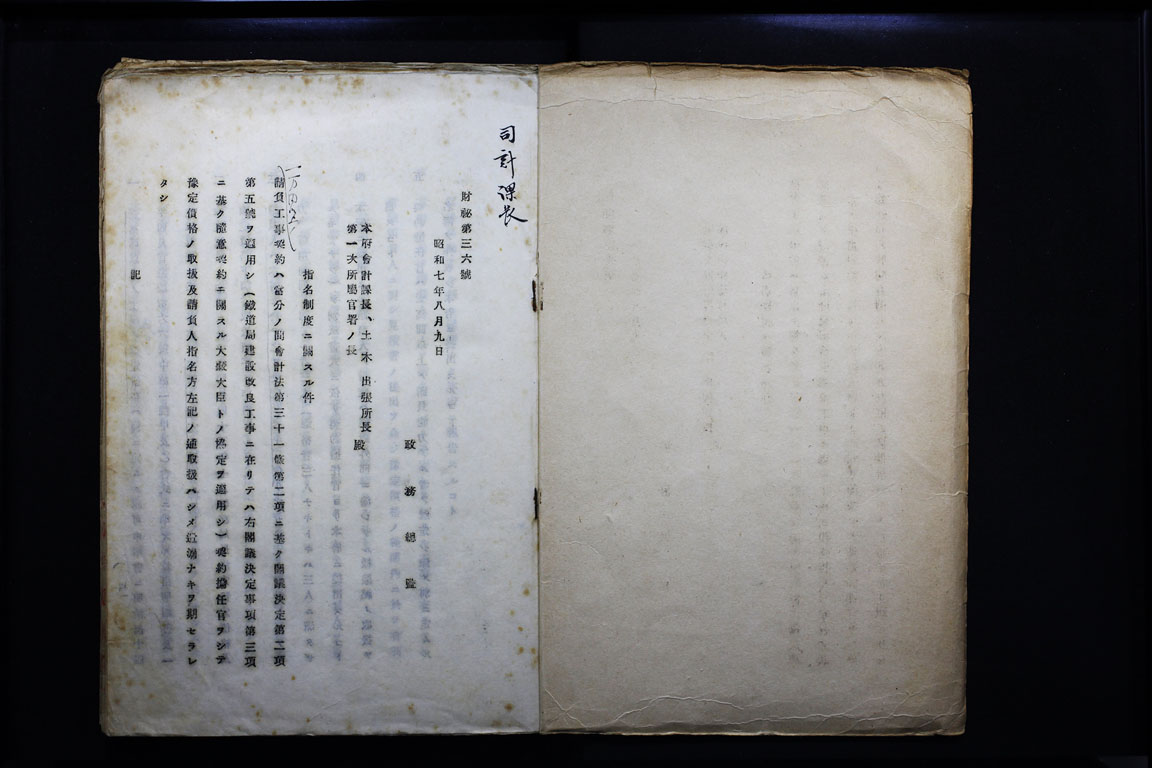 司計課長
財祕第三六號
昭和七年八月九日
政務總監
本府會計課長、土木出張所長
第一次所屬官署ノ長
殿
指名制度ニ關スル件
請負工事契約ハ當分ノ間會計法第三十一條第二項ニ基ク閣議決定第二項
第五號ヲ適用シ(鐵道局建設改良工事ニ在リテハ右閣議決定事項第三項
ニ基ク隨意契約ニ關スル大藏大臣トノ協定ヲ適用シ)契約擔任官ヲシテ
豫定價格ノ取扱及請負人指名方左記ノ通取扱ハシメ遺漏ナキヲ期セラレ
タシ
記